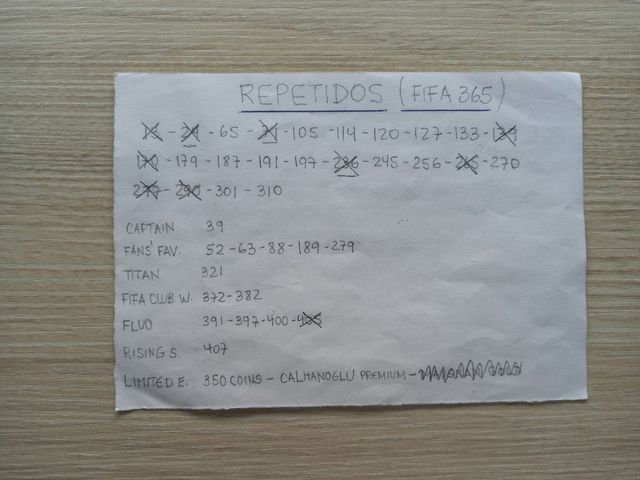 REPETIDOS (FIFA 365)
- 65 - - 105 - 114 - 120 - 127 - 133 -
- 179 - 187 - 191 - 197 - 236 - 245 - 256 - - 270
- 301 - 310
CAPTAIN 39
FANS' FAV. 52 - 63 - 88 - 189 - 279
TITAN 321
FIFA CLUB W. 372 - 382
FLUO 391 - 397 - 400 - 405
RISING S. 407
LIMITED E. 350 COINS - CALHANOGLU PREMIUM -